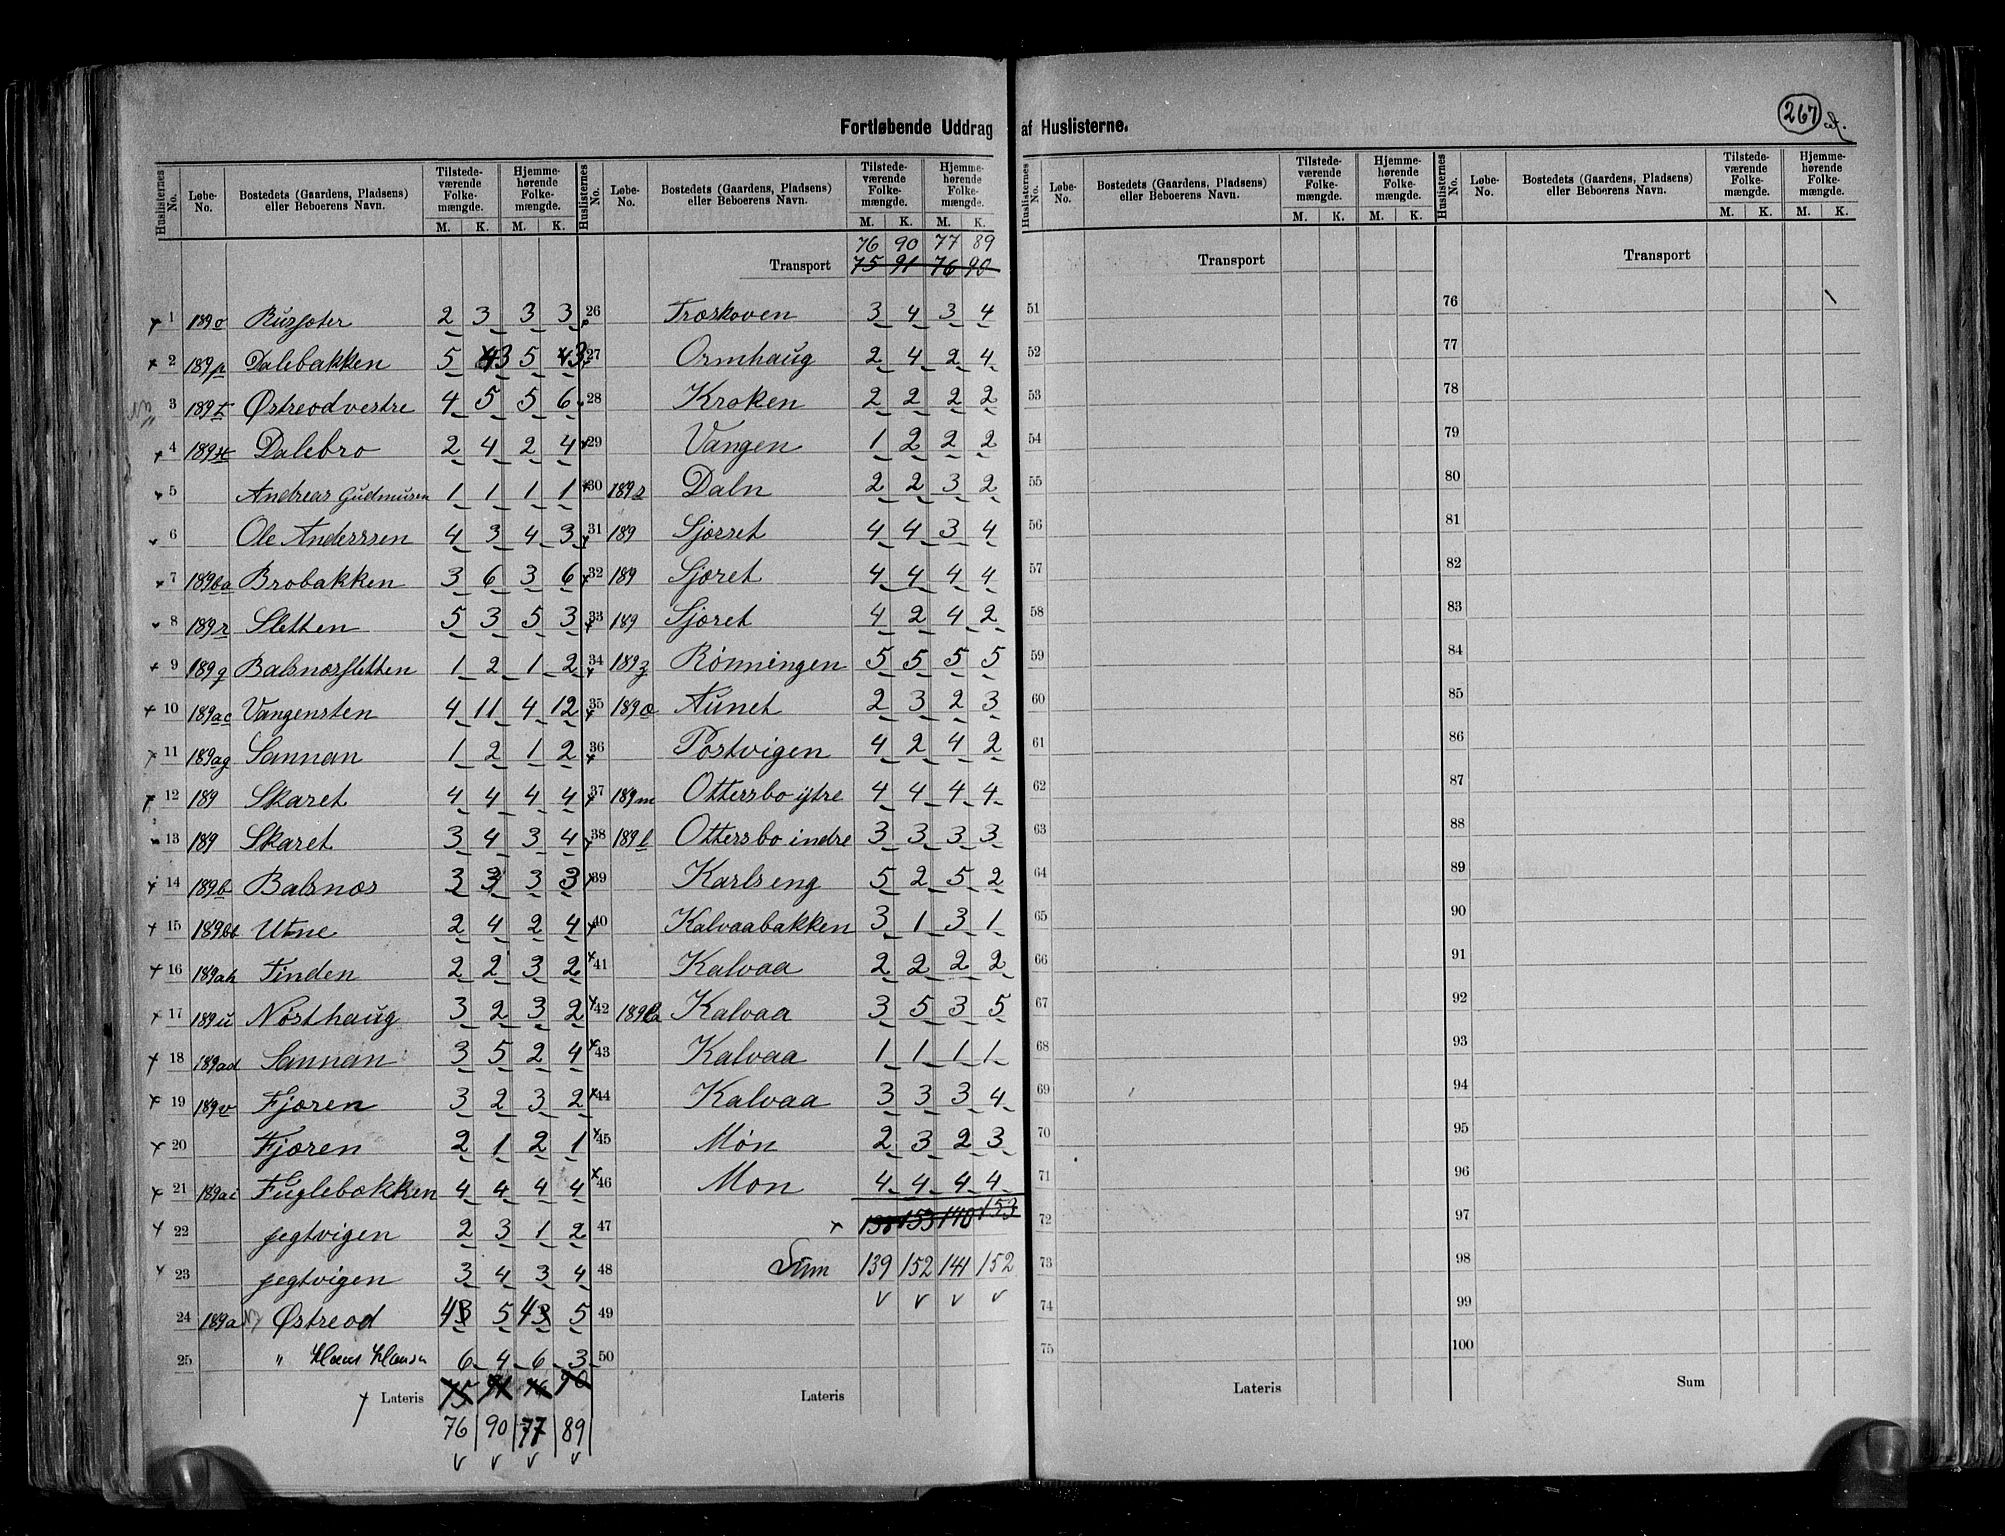 267
Fortløbende Uddrag af Huslisterne.
Huslisternes No. Løbe-No. Bostedets (Gaardens, Pladsens) eller Beboerens Navn. Tilstedeværende Folkemængde. Hjemmehørende Folkemængde. Huslisternes No. Løbe-No. Bostedets (Gaardens, Pladsens) eller Beboerens Navn. Tilstedeværende Folkemængde. Hjemmehørende Folkemængde.
M. K. M. K. M. K. M. K.
76 90 77 89
Transport 75 91 76 90
1 189o 2 3 3 3
2 189p Dalebakken 5 3 5 3
3 189t Østreod vestre 4 5 5 6
4 189 Dalebro 2 4 2 4
5 Andreas Gudmusen 1 1 1 1
6 Ole Anderssen 4 3 4 3
7 189ba Brobakken 3 6 3 6
8 189r Sletten 5 3 5 3
9 189q Balsnæssletten 1 2 1 2
10 189ac Vangensten 4 11 4 12
11 189ag Sannan 1 2 1 2
12 189 Skaret 4 4 4 4
13 189 Skaret 3 4 3 4
14 189b Balsnæs 3 3 3 3
15 189bb Utne 2 4 2 4
16 189ah Tinden 2 2 3 2
17 189u Nøsthaug 3 2 3 2
18 189ad Sannan 3 5 2 4
19 189v Fjæren 3 2 3 2
20 Fjæren 2 1 2 1
21 189ai Fuglebakken 4 4 4 4
22 Jegtvigen 2 3 1 2
23 Jegtvigen 3 4 3 4
24 189a Østreod 4 5 4 5
25 " Hans Hansen 6 4 6 3
Lateris 75 91 76 90
76 90 77 89
26 Træskoven 3 4 3 4
27 Ormhaug 2 4 2 4
28 Kroken 2 2 2 2
29 Vangen 1 2 2 2
30 189s Daln 2 2 3 2
31 189 Sjørset 4 4 3 4
32 189 Sjøret 4 4 4 4
33 189 Sjøret 4 2 4 2
34 189z Rønningen 5 5 5 5
35 189æ Aunet 2 3 2 3
36 Postvigen 4 2 4 2
37 189m Ottersbo ytre 4 4 4 4
38 189l Ottersbo indre 3 3 3 3
39 Karlseng 5 2 5 2
40 Kalvaabakken 3 1 3 1
41 Kalvaa 2 2 2 2
42 Kalvaa 3 5 3 5
43 Kalvaa 1 1 1 1
44 Kalvaa 3 3 3 4
45 Møn 2 3 2 3
46 Møn 4 4 4 4
47 138 153 140 153
48 Sum 139 152 141 152
49
50
Lateris
Huslisternes No. Løbe-No. Bostedets (Gaardens, Pladsens) eller Beboerens Navn. Tilstedeværende Folkemængde. Hjemmehørende Folkemængde. Huslisternes No. Løbe-No. Bostedets (Gaardens, Pladsens) eller Beboerens Navn. Tilstedeværende Folkemængde. Hjemmehørende Folkemængde.
M. K. M. K. M. K. M. K.
Transport
51
52
53
54
55
56
57
58
59
60
61
62
63
64
65
66
67
68
69
70
71
72
73
74
75
Lateris
Transport
76
77
78
79
80
81
82
83
84
85
86
87
88
89
90
91
92
93
94
95
96
97
98
99
100
Sum